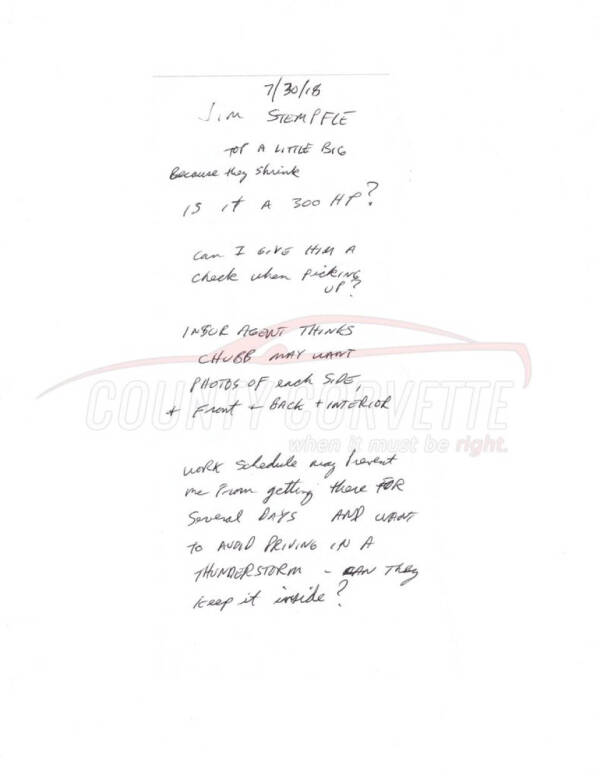 7/30/18
Jim STEMPFLE
TOP A LITTLE BIG
Because they shrink
IS IT A 300 HP?
can I GIVE HIM A
check when picking
UP?
INSUR AGENT THINGS
CHUBB MAY WANT
PHOTOS OF each SIDE,
+ Front + BACK + INTERIOR
COUNTY CORVETTE
when it must be right.
WORK schedule may prevent
me from getting there FOR
Several DAYS AND WANT
TO AVOID DRIVING IN A
THUNDERSTORM - CAN They
keep it inside?